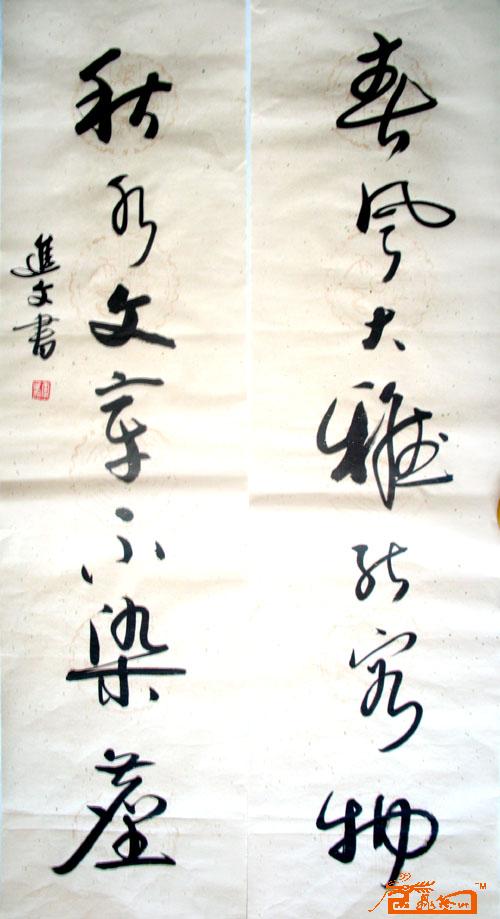 春风大雅能容物
秋水文章不染尘
進文書
TM